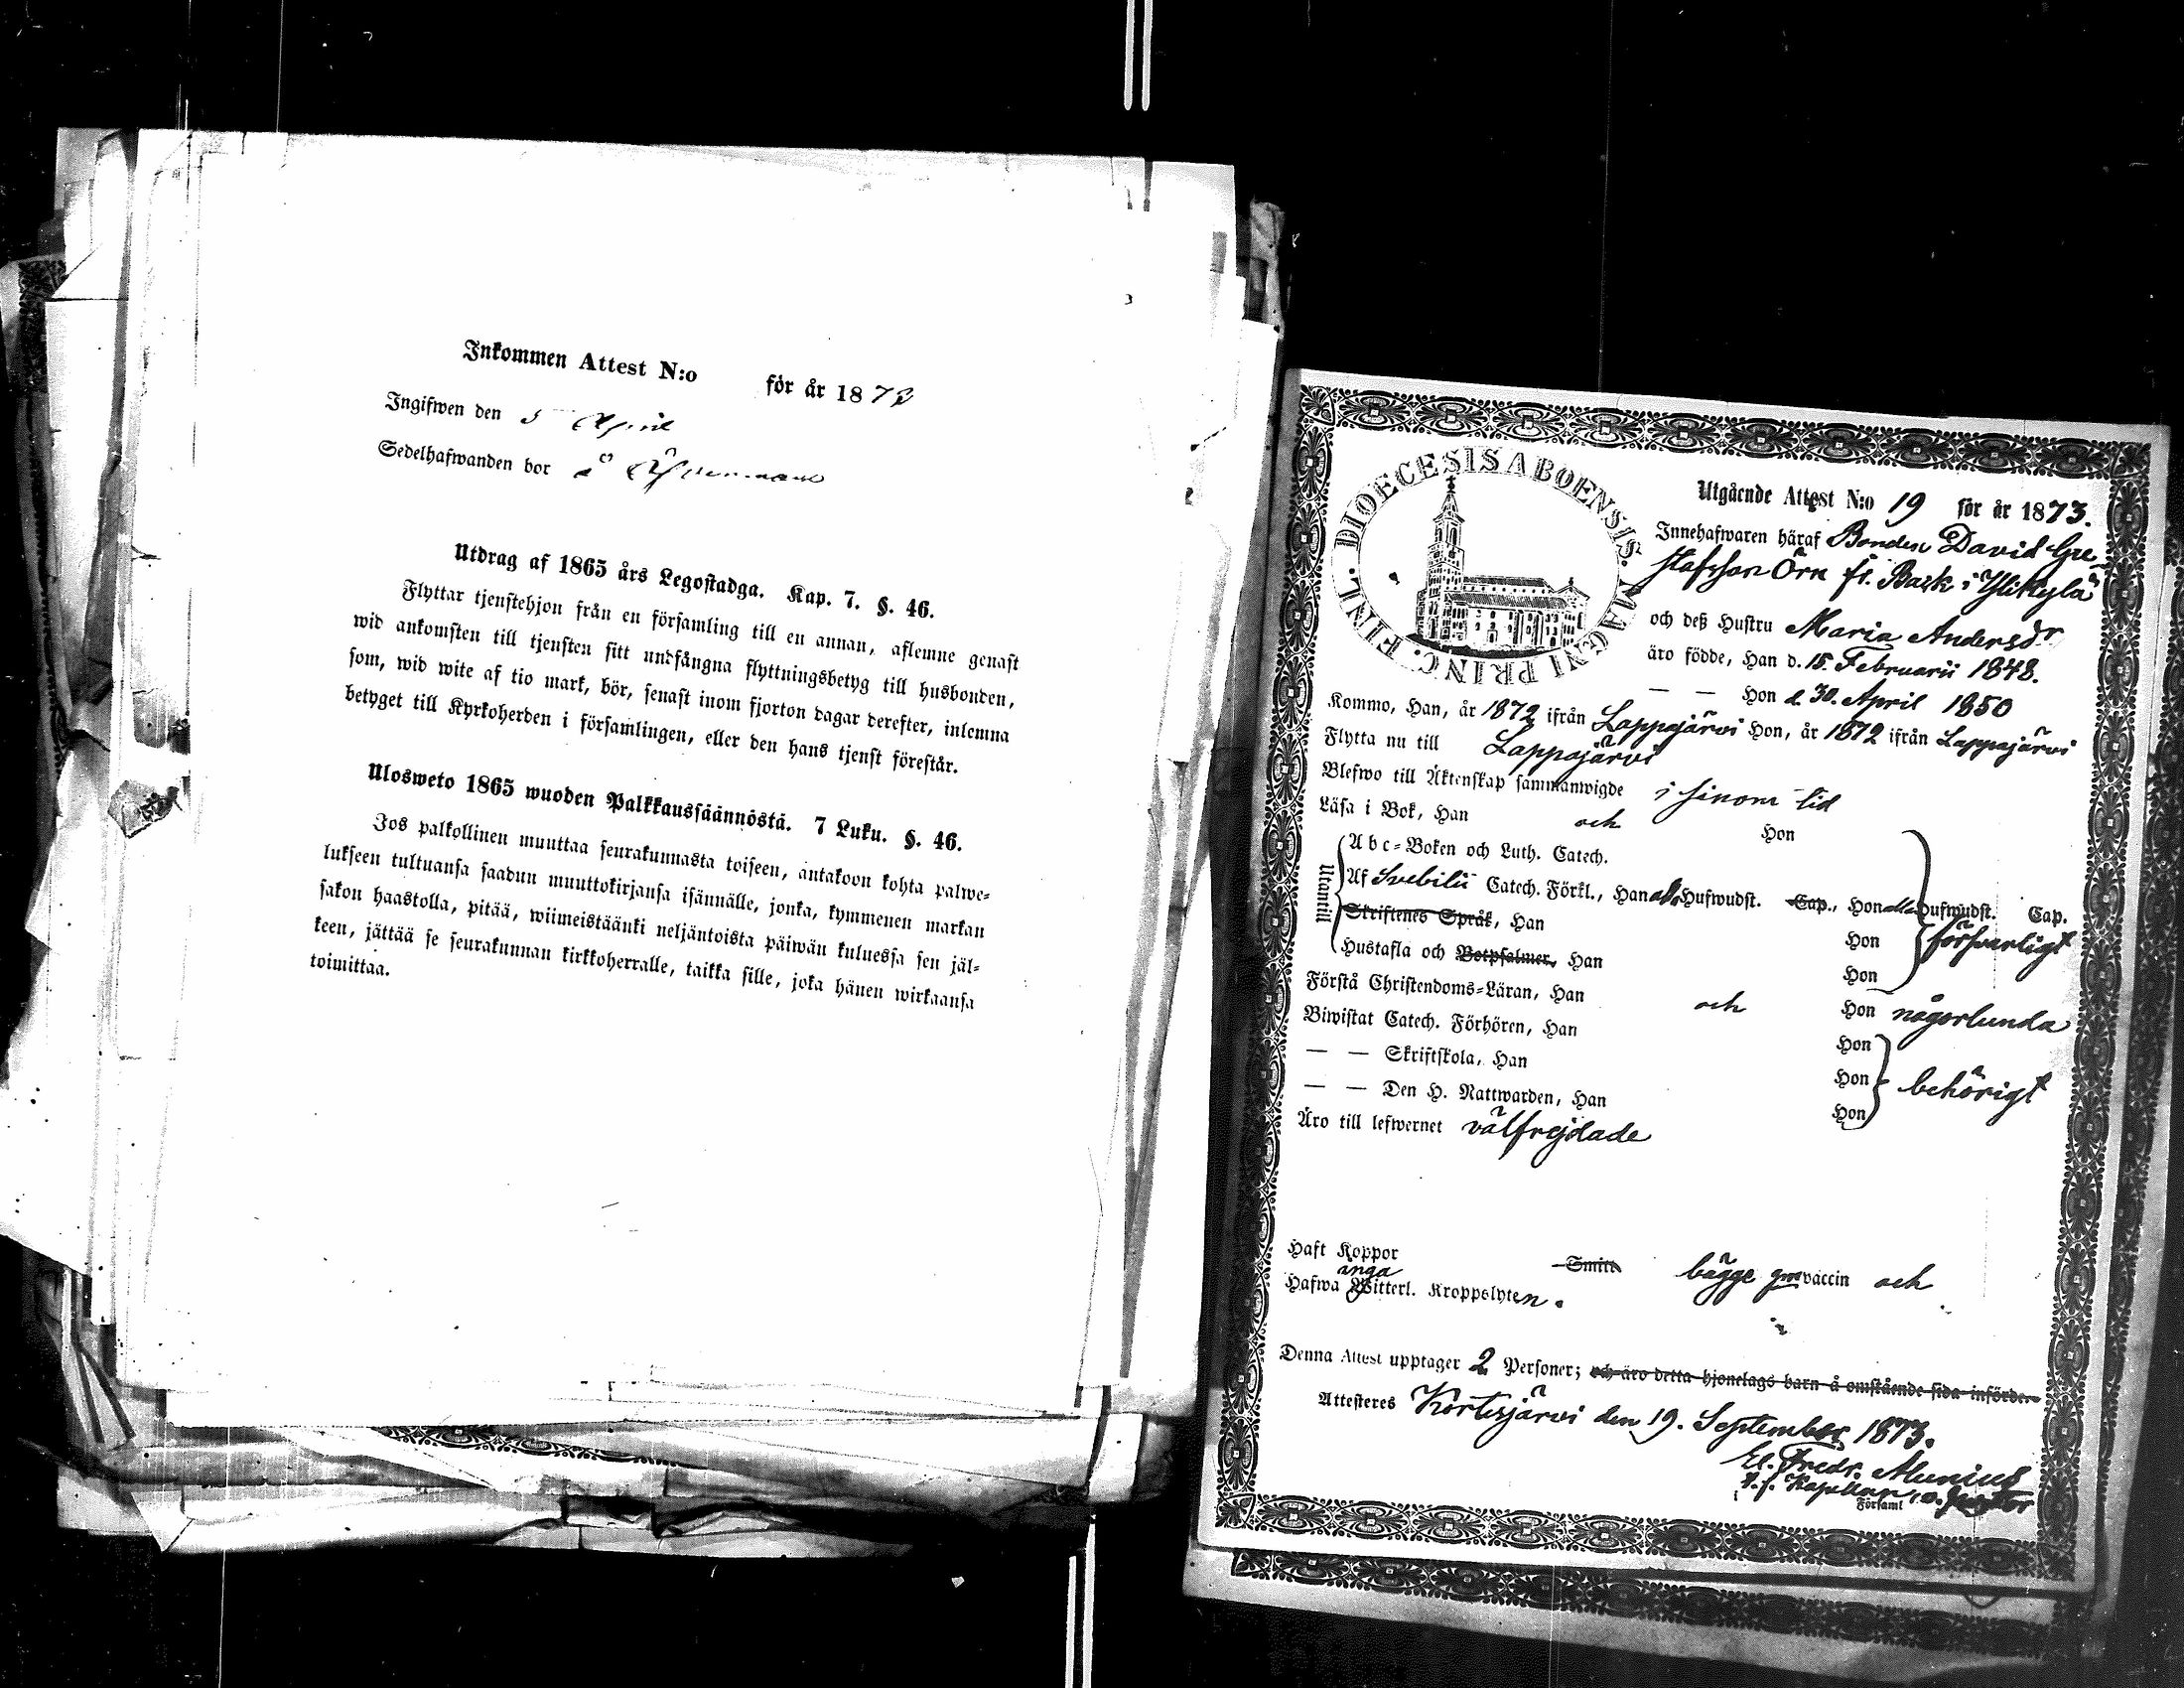 Inkommen Attest N:o för år 1873
Ingifwen den 5 April
Sedelhafwanden bor å
Utdrag af 1865 års Legostadga. Kap. 7. §. 46.
Flyttar tjenstehjon från en församling till en annan, aflemne genast
wid ankomsten till tjensten sitt undfångna flyttningsbetyg till husbonden,
som, wid wite af tio mark, bör, senast inom fjorton dagar derefter, inlemna
betyget till Kyrkoherden i församlingen, eller den hans tjenst förestår.
Ulosweto 1865 wuoden Palkkaussäännöstä. 7 Luku. §. 46.
Jos palkollinen muuttaa seurakunnasta toiseen, antakoon kohta palwe-
lukseen tultuansa saadun muuttokirjansa isännälle, jonka, kymmenen markan
sakon haastolla, pitää, wiimeistäänki neljäntoista päiwän kuluessa sen jäl-
keen, jättää se seurakunnan kirkkoherralle, taikka sille, joka hänen wirkaansa
toimittaa.
DIOECESIS ABOENSIS. MAGNI PRINC. FINL.
Utgående Attest N:o 19 för år 1873.
Innehafwaren häraf Bonden David Gu
stafsson Örn fr. Bask i Ylikylä
och deß Hustru Maria Andersdr
äro födde, Han d. 15 Februarii 1848.
— — Hon d. 30. April 1850
Kommo, Han, år 1872 ifrån Lappajärvi Hon, år 1872 ifrån Lappajärvi
Flytta nu till Lappajärvi
Blefwo till Äktenskap sammanwigde i sinom tid
Läsa i Bok, Han och Hon
Utantill
Abc-Boken och Luth. Catech.
Af Svebilii Catech. Förkl., Han alla Hufwudst. Cap., Hon alla Hufwudst. Cap.
Skriftenes Språk, Han Hon försvarligt
Hustafla och Botpsalmer, Han Hon
Förstå Christendoms-Läran, Han och Hon någorlunda
Biwistat Catech. Förhören, Han Hon
— — Skriftskola, Han Hon behörigt
— — Den H. Nattwarden, Han Hon
Äro till lefwernet välfrejdade
Haft Koppor Smitt bägge gm vaccin och
inga
Hafwa Witterl. Kroppslyten.
Denna Attest upptager 2 Personer; och äro detta hjonelags barn å omstående sida införde.
Attesteres Kortesjärvi den 19. September 1873.
El. Fredr. Alcenius
t. f. Kapellan i o. pastor
i Församl